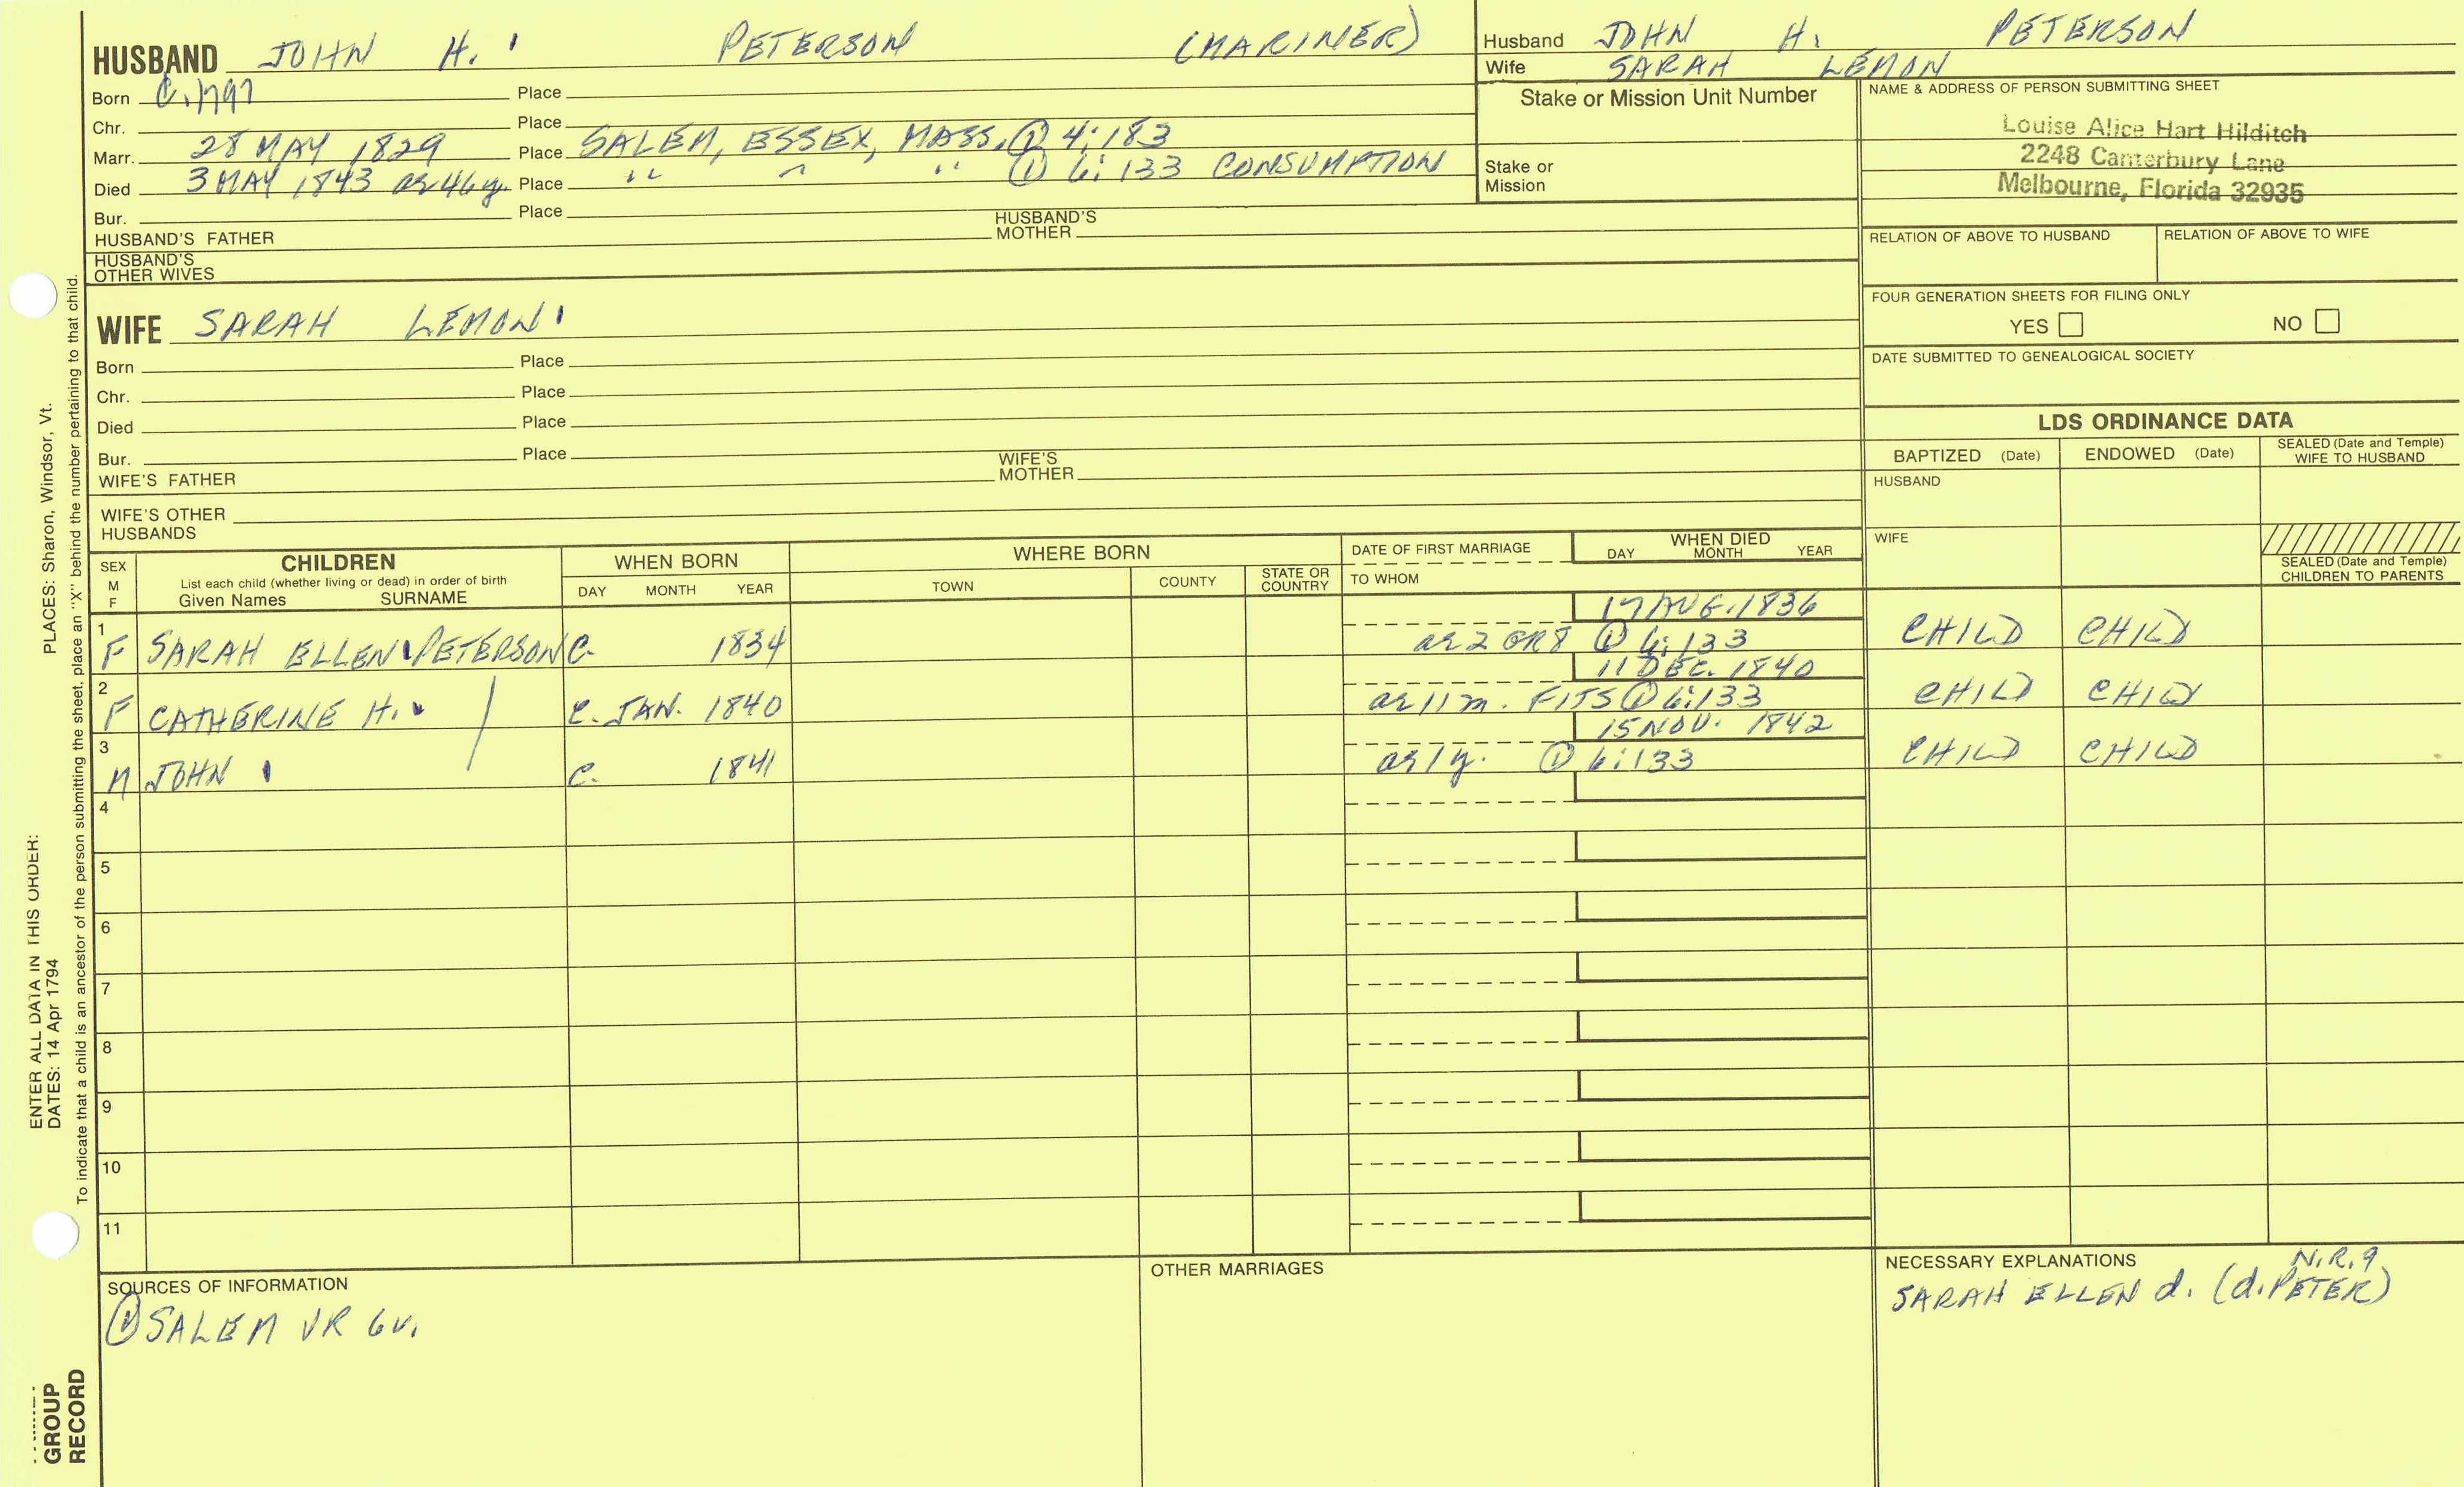 HUSBAND JOHN H. PETERSON (MARINER)
Born C. 1797 Place
Chr. Place
Marr. 28 MAY 1829 Place SALEM, ESSEX, MASS. ① 4:183
Died 3 MAY 1843 ae 46 y. Place " " " ① 6:133 CONSUMPTION
Bur. Place
HUSBAND'S FATHER HUSBAND'S MOTHER
HUSBAND'S OTHER WIVES
Husband JOHN H. PETERSON
Wife SARAH LEMON
Stake or Mission Unit Number
Stake or Mission
NAME & ADDRESS OF PERSON SUBMITTING SHEET
Louise Alice Hart Hilditch
2248 Canterbury Lane
Melbourne, Florida 32935
RELATION OF ABOVE TO HUSBAND RELATION OF ABOVE TO WIFE
FOUR GENERATION SHEETS FOR FILING ONLY
YES NO
DATE SUBMITTED TO GENEALOGICAL SOCIETY
WIFE SARAH LEMON
Born Place
Chr. Place
Died Place
Bur. Place
WIFE'S FATHER WIFE'S MOTHER
WIFE'S OTHER HUSBANDS
LDS ORDINANCE DATA
BAPTIZED (Date) ENDOWED (Date) SEALED (Date and Temple) WIFE TO HUSBAND
HUSBAND
WIFE
SEALED (Date and Temple) CHILDREN TO PARENTS
SEX M F
CHILDREN
List each child (whether living or dead) in order of birth
Given Names SURNAME
WHEN BORN
DAY MONTH YEAR
WHERE BORN
TOWN COUNTY STATE OR COUNTRY
DATE OF FIRST MARRIAGE
TO WHOM
WHEN DIED
DAY MONTH YEAR
1 F SARAH ELLEN PETERSON C. 1834 17 AUG. 1836 ae 2 OR 8 ① 6:133 CHILD CHILD
2 F CATHERINE H. / C. JAN. 1840 11 DEC. 1840 ae 11 m. FITS ① 6:133 CHILD CHILD
3 M JOHN C. 1841 15 NOV. 1842 ae 1 y. ① 6:133 CHILD CHILD
4
5
6
7
8
9
10
11
SOURCES OF INFORMATION
① SALEM VR 6v.
OTHER MARRIAGES
NECESSARY EXPLANATIONS N.R.9
SARAH ELLEN d. (d. PETER)
PLACES: Sharon, Windsor, Vt.
ENTER ALL DATA IN THIS ORDER:
DATES: 14 Apr 1794
To indicate that a child is an ancestor of the person submitting the sheet, place an "X" behind the number pertaining to that child.
GROUP
RECORD